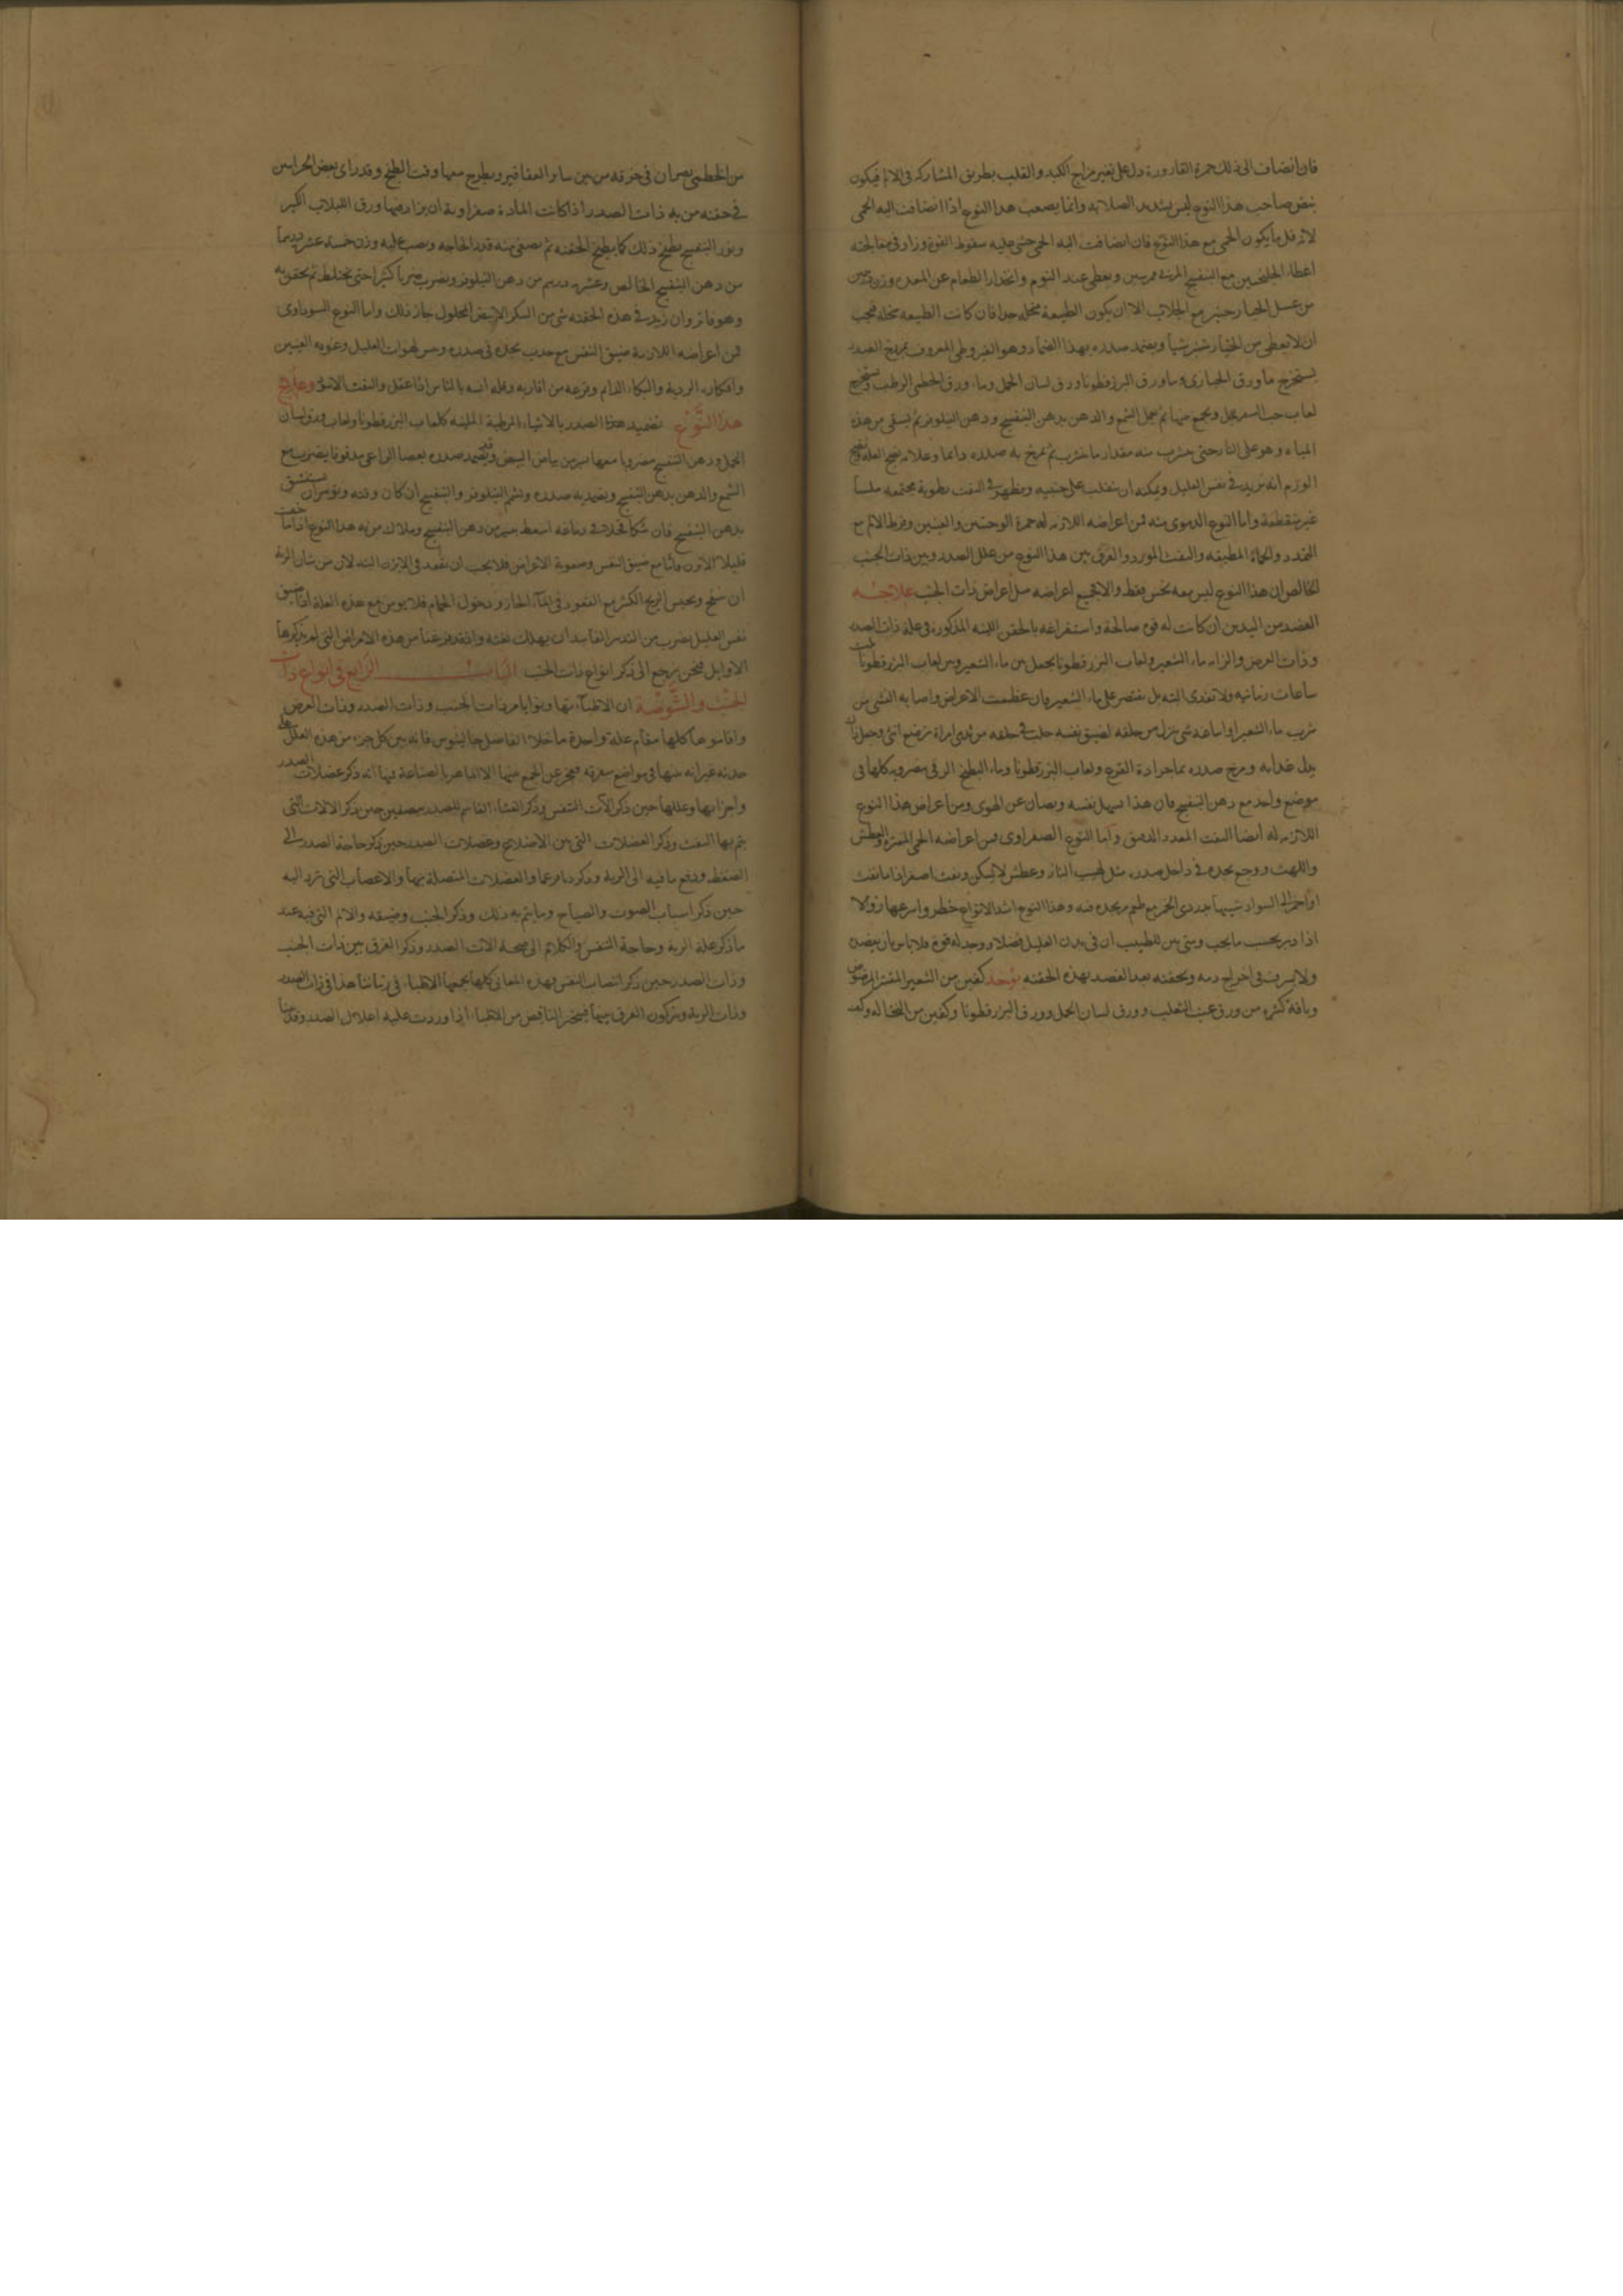 فان انضاف الى ذلك حمرة القارورة دل على تغير مزاج الكبد والقلب بطريق المشاركة فى الالم فيكون
نبض صاحب هذا النوع ليس بشديد الصلابه وانما يصعب هذا النوع اذا انضافت اليه الحمى
لانه قل ما يكون الحمى مع هذا النوع فان انضافت اليه الحمى خشى عليه سقوط القوة وزاد فى معالجته
اعطاء الجلنجبين مع البنفسج المربى ويعطى عند النوم وانحدار الطعام عن المعده وزن درهمين
من عسل الخيارشنبر مع الجلاب الا ان يكون الطبيعة منحله جدا فان كانت الطبيعه منحله فيجب
ان لا يعطى من الخيارشنبر شيأ ويضمد صدره بهذا الضماد وهو القيروطى المعروف بمريخ الصدر
يستخرج ماورق الخبازى وماورق البزرقطونا ورق لسان الحمل وماء ورق الخطمى الرطب ويستخرج
لعاب حب السفرجل ويجمع منها ثم يعمل الشمع والدهن بدهن البنفسج ودهن النيلوفر ثم يسقى من هذه
المياه وهو على النار حتى يشرب منه مقدار ما يشرب ثم يمرخ به صدره دائما وعلامة نضج العلة ونضج
الورم انه يزيد فى نفس العليل ويمكنه ان ينقلب على جنبيه ويظهر فى النفث رطوبة مجتمعه ملسا
غير متقطعة واما النوع الدموى منه فمن اعراضه اللازمه له حمرة الوجنتين والعينين وفرط الالم مع
التمدد والحماء المطبقه والنفث المورد والفرق بين هذا النوع من علل الصدر وبين ذات الجنب
الخالص ان هذا النوع ليس معه نخس فقط والا فجميع اعراضه مثل اعراض ذات الجنب علاجه
الفصد من اليدين ان كانت له قوة صالحة واستفراغه بالحقن اللينه المذكوره فى علة ذات الصدر
وذات العرض والزامه ماء الشعير ولعاب البزرقطونا يجعل بين ماء الشعير وبين لعاب البزرقطونا ثلث
ساعات زمانيه ولا تغذى البته بل يقتصر على ماء الشعير فان عظمت الاعراض واصابه الغشى من
شرب ماء الشعير او اساغه شى ينزل من حلقه لضيق نفسه حلب فى حلقه من ثدى امراة ترضع انثى وجعل ذلك
بدل غذايه ومرخ صدره بماجرادة القرع ولعاب البزرقطونا وماء البطيخ الرقى مضروبه كلها فى
موضع واحد مع دهن البنفسج فان هذا يسهل نفسه ويصان عن الهوى ومن اعراض هذا النوع
اللازمه له ايضا النفث المعدد المدمق واما النوع الصفراوى فمن اعراضه الحمى المفتره والعطش
واللهث ووجع يجده فى داخل صدره مثل لهيب النار وعطش لا يسكن ونفث اصفر اذا ما نفث
او احمر الى السواد شبيها بدردى الخمر مع طعم مر يجده منه وهذا النوع اشد الانواع خطر واسرعها زوالا
اذا دبر بحسب ما يجب ومتى بين للطبيب ان فى بدن العليل فضلا ووجد له قوة فلا باس بان يفصده
ولا يسرف فى اخراج دمه ويحقنه بعد الفصد بهذه الحقنه يوخذ كفين من الشعير المقشر المرضوض
وباقة كثيره من ورق عنب الثعلب وورق لسان الحمل وورق البزرقطونا وكفين من النخاله وكف
من الخطمى يصران فى خرقه من بين ساير العقاقير ويطرح معها وقت الطبخ وقد راى بعض الحرانيين
فى حقنه من به ذات الصدر اذا كانت المادة صفراويه ان يزاد فيها ورق اللبلاب الكبر
وبزر البنفسج يطبخ ذلك كما يطبخ الحقنه ثم يصفى منه قدر الحاجه ويصب عليه وزن خمسة عشر درهما
من دهن البنفسج الخالص وعشره دراهم من دهن النيلوفر ويضرب ضربا كثيرا حتى يختلط ثم يحقن به
وهو فاتر وان زيد فى هذه الحقنه شى من السكر الابيض المحلول جاز ذلك واما النوع السوداوى
فمن اعراضه اللازمة ضيق النفس مع جدب يجده فى صدره ويبس لهوات العليل وغوور العينين
وافكاره الرديه والبكاء الدايم وفزعه من اقاربه وقله انسه بالناس اذا عقل والنفث الاسود وعلاج
هذا النوع تضميد هذا الصدر بالاشياء المرطبة الملينه كلعاب البزرقطونا ولعاب ورق لسان
الحمل ودهن البنفسج مضروبا معها يسير من بياض البيض وقد يضمد صدره بعصا الراعى مدقوقا يضرب مع
الشمع والدهن بدهن البنفسج ويضمد به صدره ويشم النيلوفر والبنفسج ان كان وقته ويؤمر ان يستنشق
بدهن البنفسج فان شكا خلا فى دماغه اسعط بيسير من دهن البنفسج وملاك من به هذا النوع اذا ما خفت
قليلا الابزن فاما مع ضيق النفس وصعوبة الاعراض فلا يجب ان يقعد فى الابزن البته لان من شان الرية
ان تسخن ويحبس الريح الكثير مع القعود فى الماء الحار ودخول الحمام فلا يومن مع هذه العلة اذا ضيق
نفس العليل بضرب من التدبير الفاسد ان يهلك بغته واذ قد فرغنا من هذه الامراض التى لم يذكرها
الاوايل فنحن نرجع الى ذكر انواع ذات الجنب الباب الرابع فى انواع ذات
الجنب والشوصة ان الاطباء تهاونوا بامر ذات الجنب وذات الصدر وذات العرض
واقاموها كلها مقام علة واحدة ما خلا الفاضل جالينوس فانه بين كل جزء من هذه العلل على
حدته غير انه بينها فى مواضع متفرقه فعجز عن الجمع منها الا الماهر بالصناعة فيها انه ذكر عضلات الصدر
واجزايها وعللها حين ذكر الات التنفس وذكر الغشاء القاسم للصدر بنصفين حين ذكر الالات التى
يتم بها النفث وذكر العضلات التى بين الاضلاع وعضلات الصدر حين ذكر حاجة الصدر الى
الضغط ودفع ما فيه الى الرية وذكر ديافرغما والعضلات المتصلة بها والاعصاب التى ترد اليه
حين ذكر اسباب الصوت والصياح وما يتم به ذلك وذكر الجنب وضيقه والالم التى فيه عند
ما ذكر علة الرية وحاجة التنفس والكلام الى صحة الات الصدر وذكر الفرق بين ذات الجنب
وذات الصدر حين ذكر انتصاب النفس فهذه المعانى كلها يجمعها الاطباء فى زماننا هذا فى ذات الصدر
وذات الرية ويتركون الفرق بينها فيتحير الناقص من الاطباء اذا وردت عليه اعلال الصدر وقد بينا